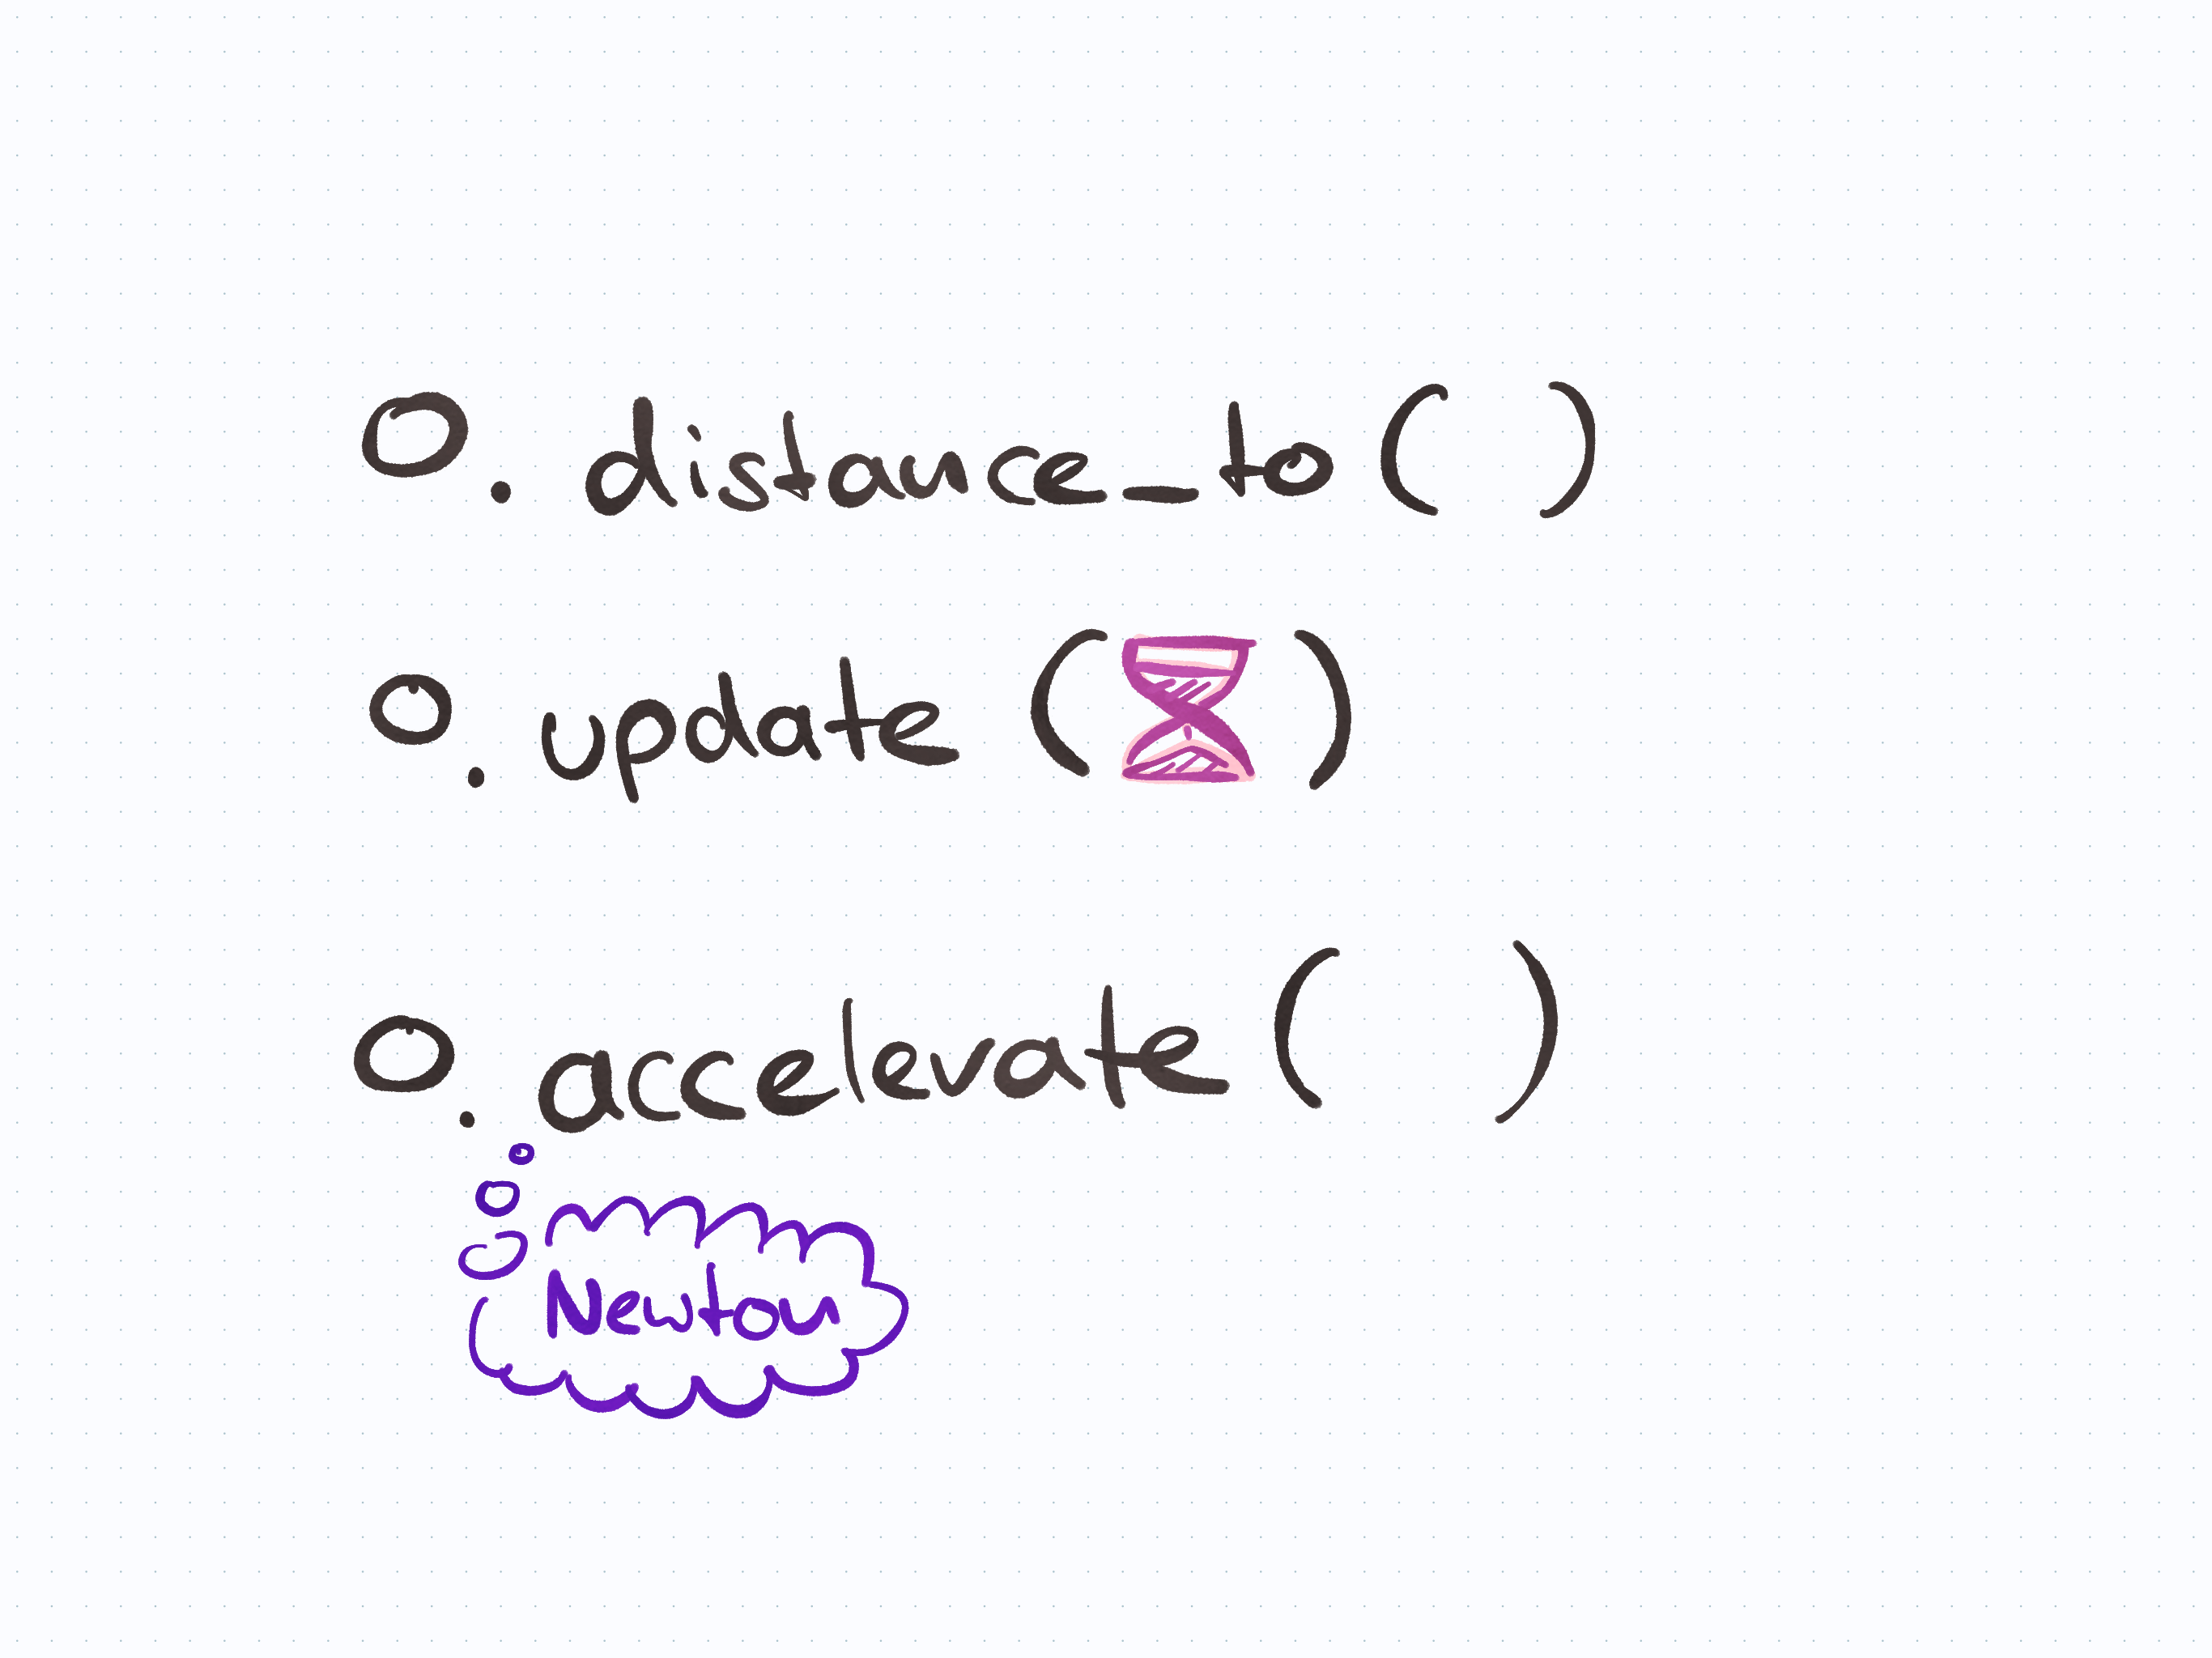 O. distance_to( )
O. update ( )
O. accelerate ( )
Newton